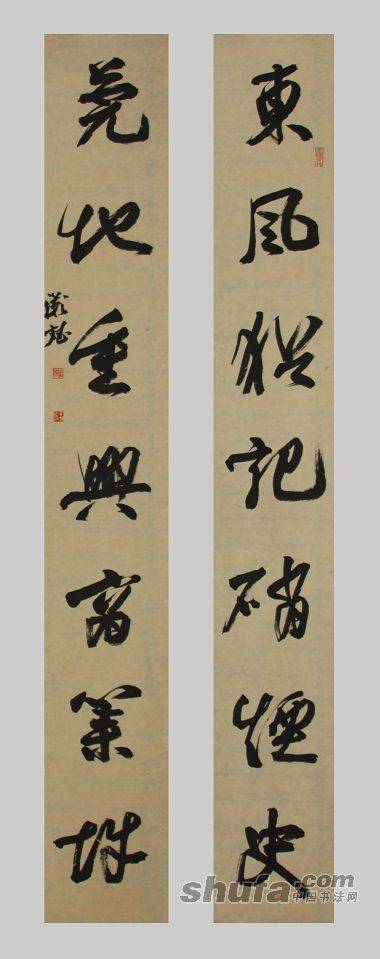 東風猶記硝煙史
莞地重興商業城
shufa.com
中国书法网